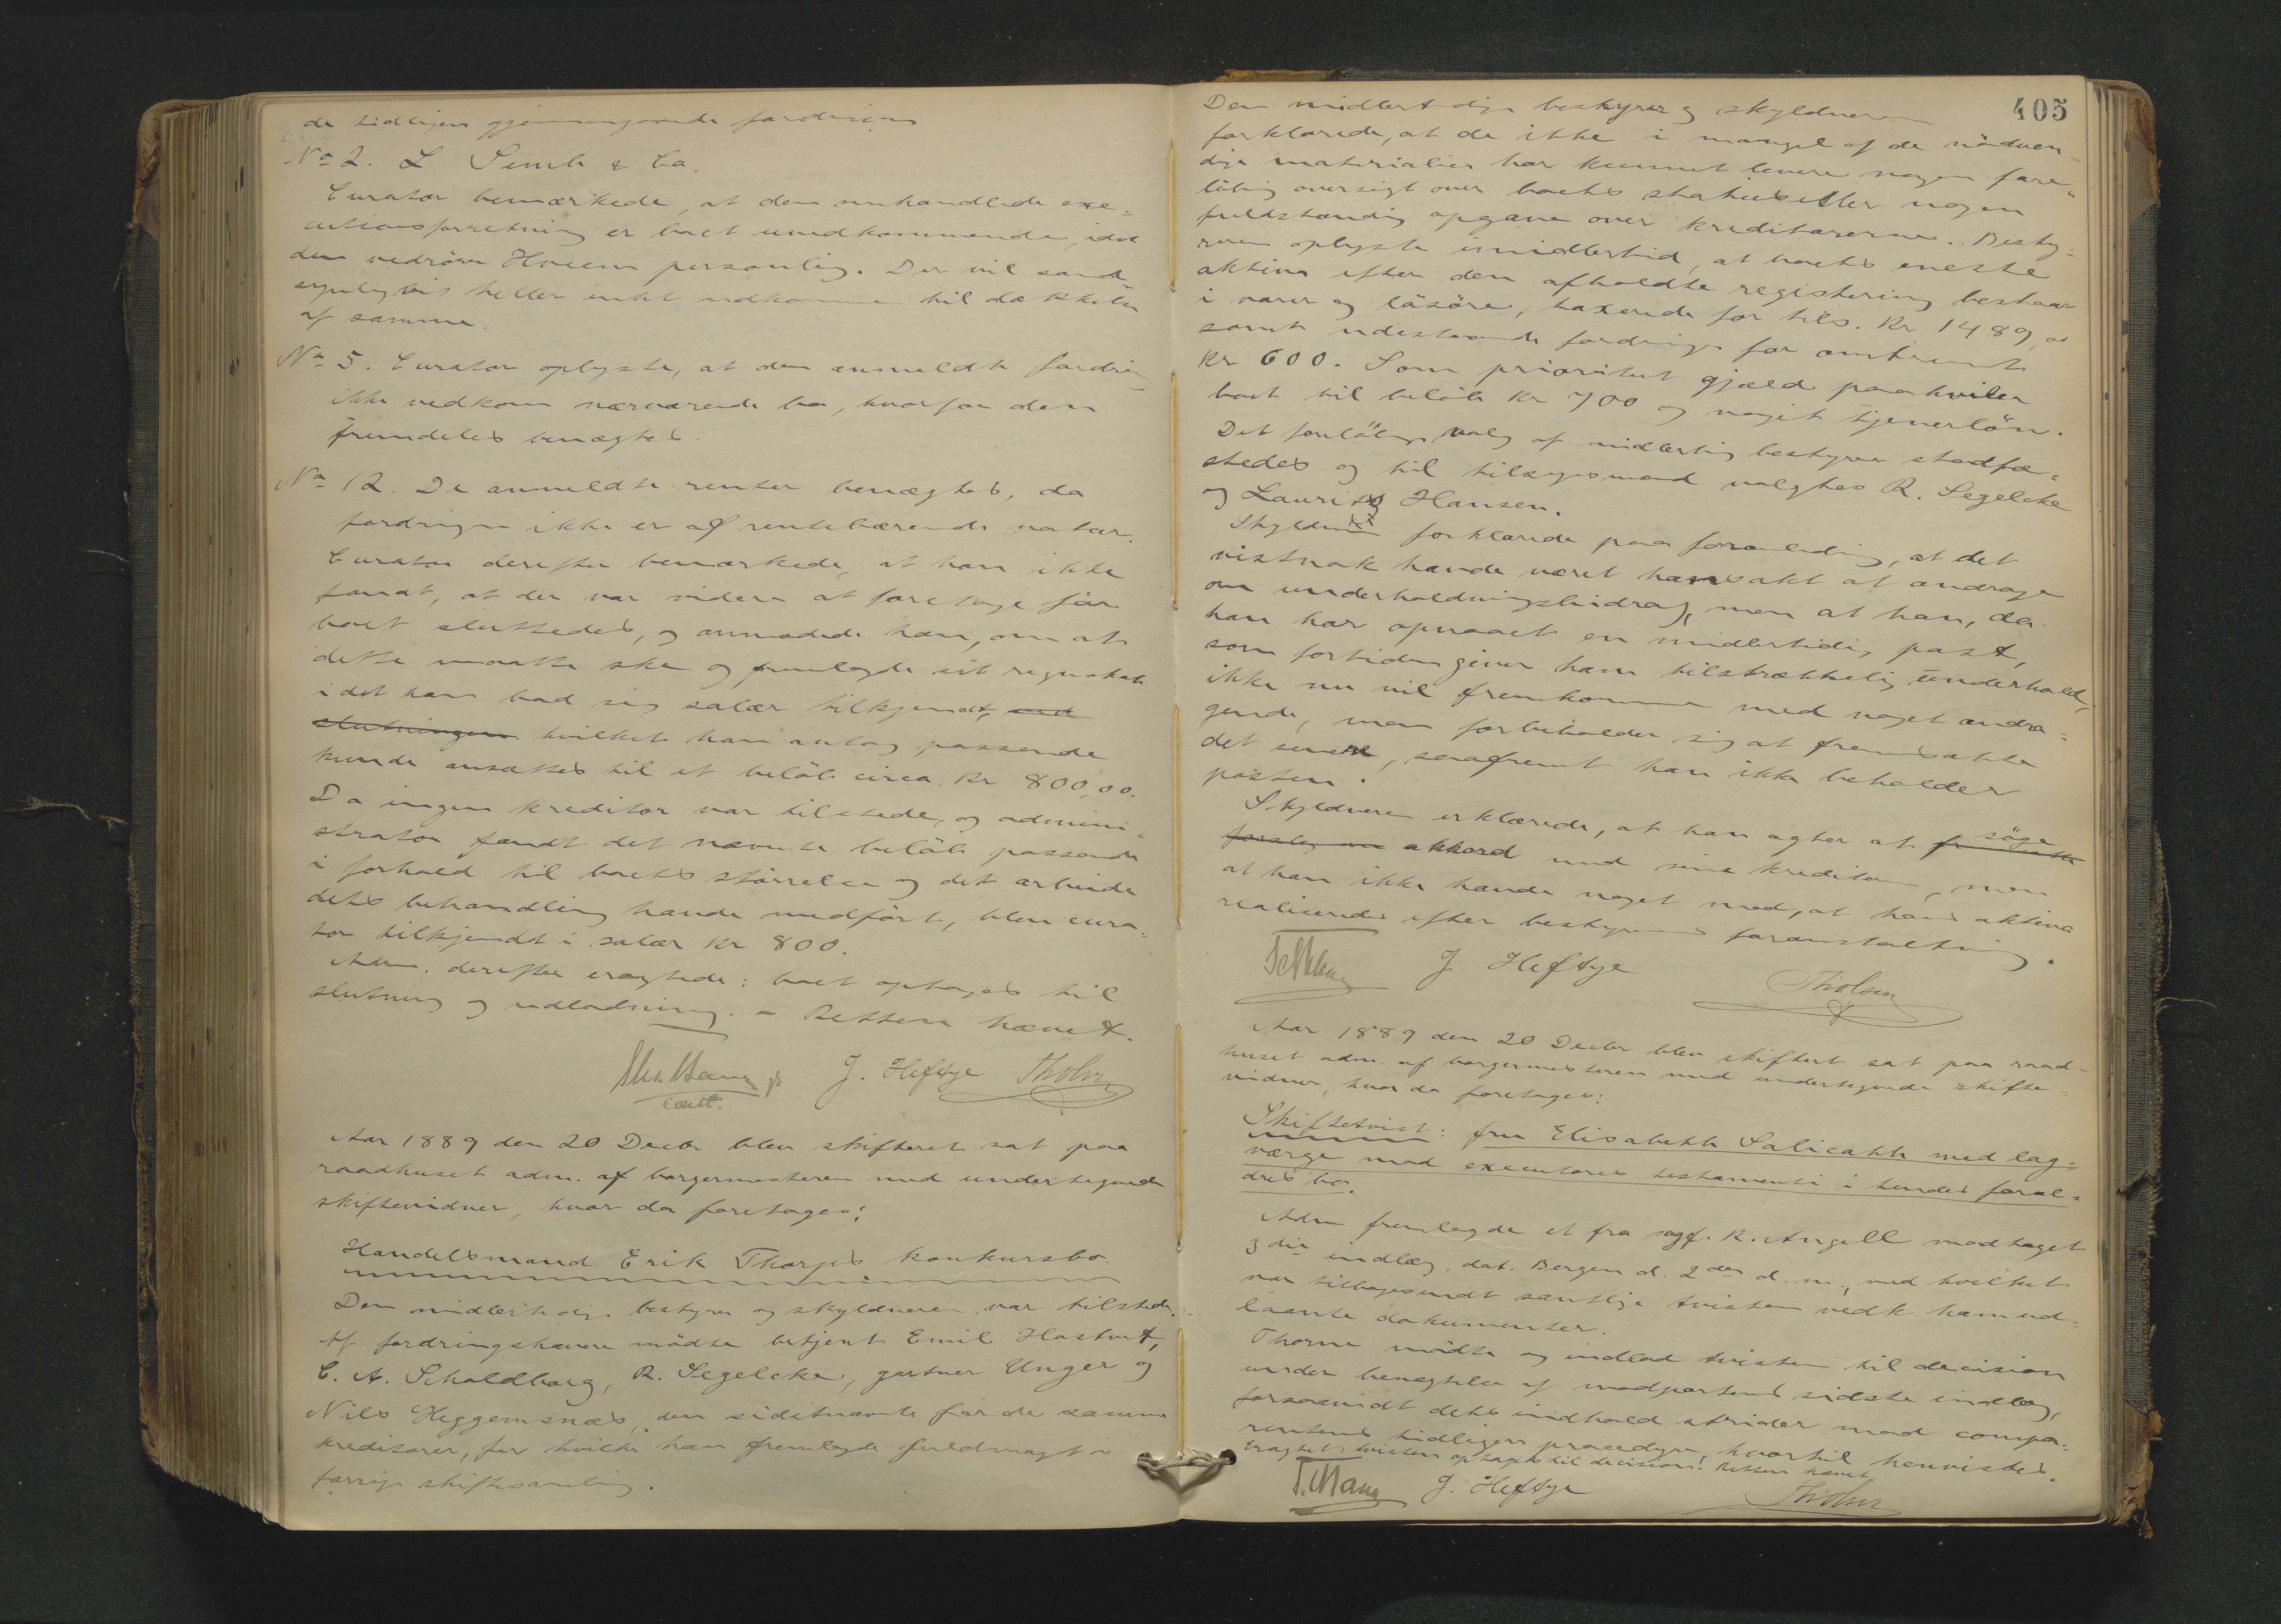 de tidligere gjennemgaaende fordringer
No 2. L. Semb & Co.
Curator bemærkede, at den omhandlede exe=
cutionsforretning er boet uvedkommende, idet
den vedrører Hveem personlig. Der vil sand=
synligvis heller intet udkomme til dækkelse
af samme.
No 5. Curator oplyste, at den anmeldte fordring
ikke vedkom nærværende bo, hvorfor den
fremdeles benægtes.
No 12. De anmeldte renter benægtes, da
fordringen ikke er af rentebærende natur.
Curator derefter bemærkede, at han ikke
fandt, at der var videre at foretage før
boet sluttedes, og anmodede han, om at
dette maatte ske og fremlagde sit regnskab
idet han bad sig salær tilkjendt, ved
slutningen hvilket han antog passende
kunde ansættes til et beløb circa kr 800,00.
Da ingen kreditor var tilstede, og admini=
strator fandt det nævnte beløb passende
i forhold til boets størrelse og det arbeide
dets behandling havde medført, blev cura=
tor tilkjendt i salær kr 800.
Adm. derefter eragtede: boet optages til
slutning og udlodning. – Retten hævet.
J. Heftye Tholsen
const.
Aar 1889 den 20 Decbr blev skifteret sat paa
raadhuset adm. af borgermesteren med undertegnede
skiftevidner, hvor da foretages:
Handelsmand Erik Thorps konkursbo.
Den midlertidige bestyrer og skyldneren var tilstede.
Af fordringshavere mødte betjent Emil Hastvet,
C. A. Scholdborg, R. Segelcke, gartner Unger og
Nils Heggemsnæs, den sidstnævnte for de samme
kreditorer, for hvilke han fremlagde fuldmagt i
forrige skiftesamling.
405
Den midlertidige bestyrer og skyldneren
forklarede, at de ikke i mangel af de nødven=
dige materialier har kunnet levere nogen fore=
løbig oversigt over boets status eller nogen
fuldstændig opgave over kreditorerne. Besty=
reren oplyste imidlertid, at boets eneste
aktiva efter den afholdte registrering bestaar
i varer og løsøre, taxerede for tils. kr 1489,00
samt udestaaende fordringer for omtrent
kr 600. Som prioritet gjæld paahviler
boet til beløb kr 700 og noget tjenerløn.
Det foreløbige valg af midlertidig bestyrer stadfæ=
stedes og til tilsynsmænd valgtes R. Segelcke
og Lauritz Hansen.
Skyldneren forklarede paa foranledning, at det
vistnok havde været hans akt at andrage
om underholdningsbidrag, men at han, da
han har opnaaet en midlertidig post,
som fortiden giver ham tilstrækkelig underhold,
ikke nu vil fremkomme med noget andra=
gende, men forbeholder sig at fremsætte
det senere, saafremt han ikke beholder
posten.
Skyldneren erklærede, at han agter at fremsætte søge
forslag om akkord med sine kreditorer, men
at han ikke havde noget mod, at hans aktiva
realiseredes efter bestyrerens foranstaltning.
J. Heftye Tholsen
Aar 1889 den 20 Decbr blev skifteret sat paa raad=
huset adm. af borgermesteren med undertegnede skifte=
vidner, hvor da foretages:
Skiftetvist: fru Elisabeth Salicath med lag=
værge mod executores testamenti i hendes foræl=
dres bo.
Adm fremlagde et fra sagf. K. Angell modtaget
3die indlæg, dat. Bergen d. 2den d. m., med hvilket
var tilbagesendt samtlige tvisten vedk. ham ud=
laante dokumenter.
Thorne mødte og indlod tvisten til decision
under benægtelse af modpartens sidste indlæg,
forsaavidt dets indhold strider mod compa=
rentens tidligere procedyre, hvortil henvistes.
Eragtet: tvisten optages til decision. Retten hævet
J. Heftye Tholsen